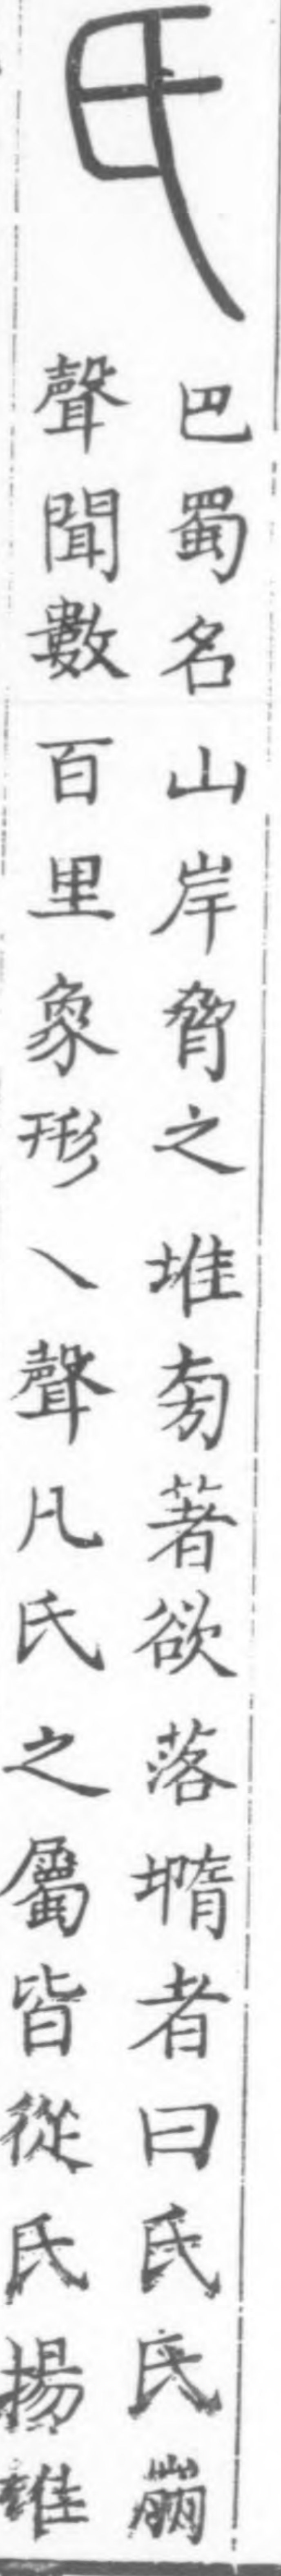 氏
巴蜀名山岸脅之堆旁著欲落墮者曰氏氏崩
聲聞數百里象形乀聲凡氏之屬皆從氏揚雄